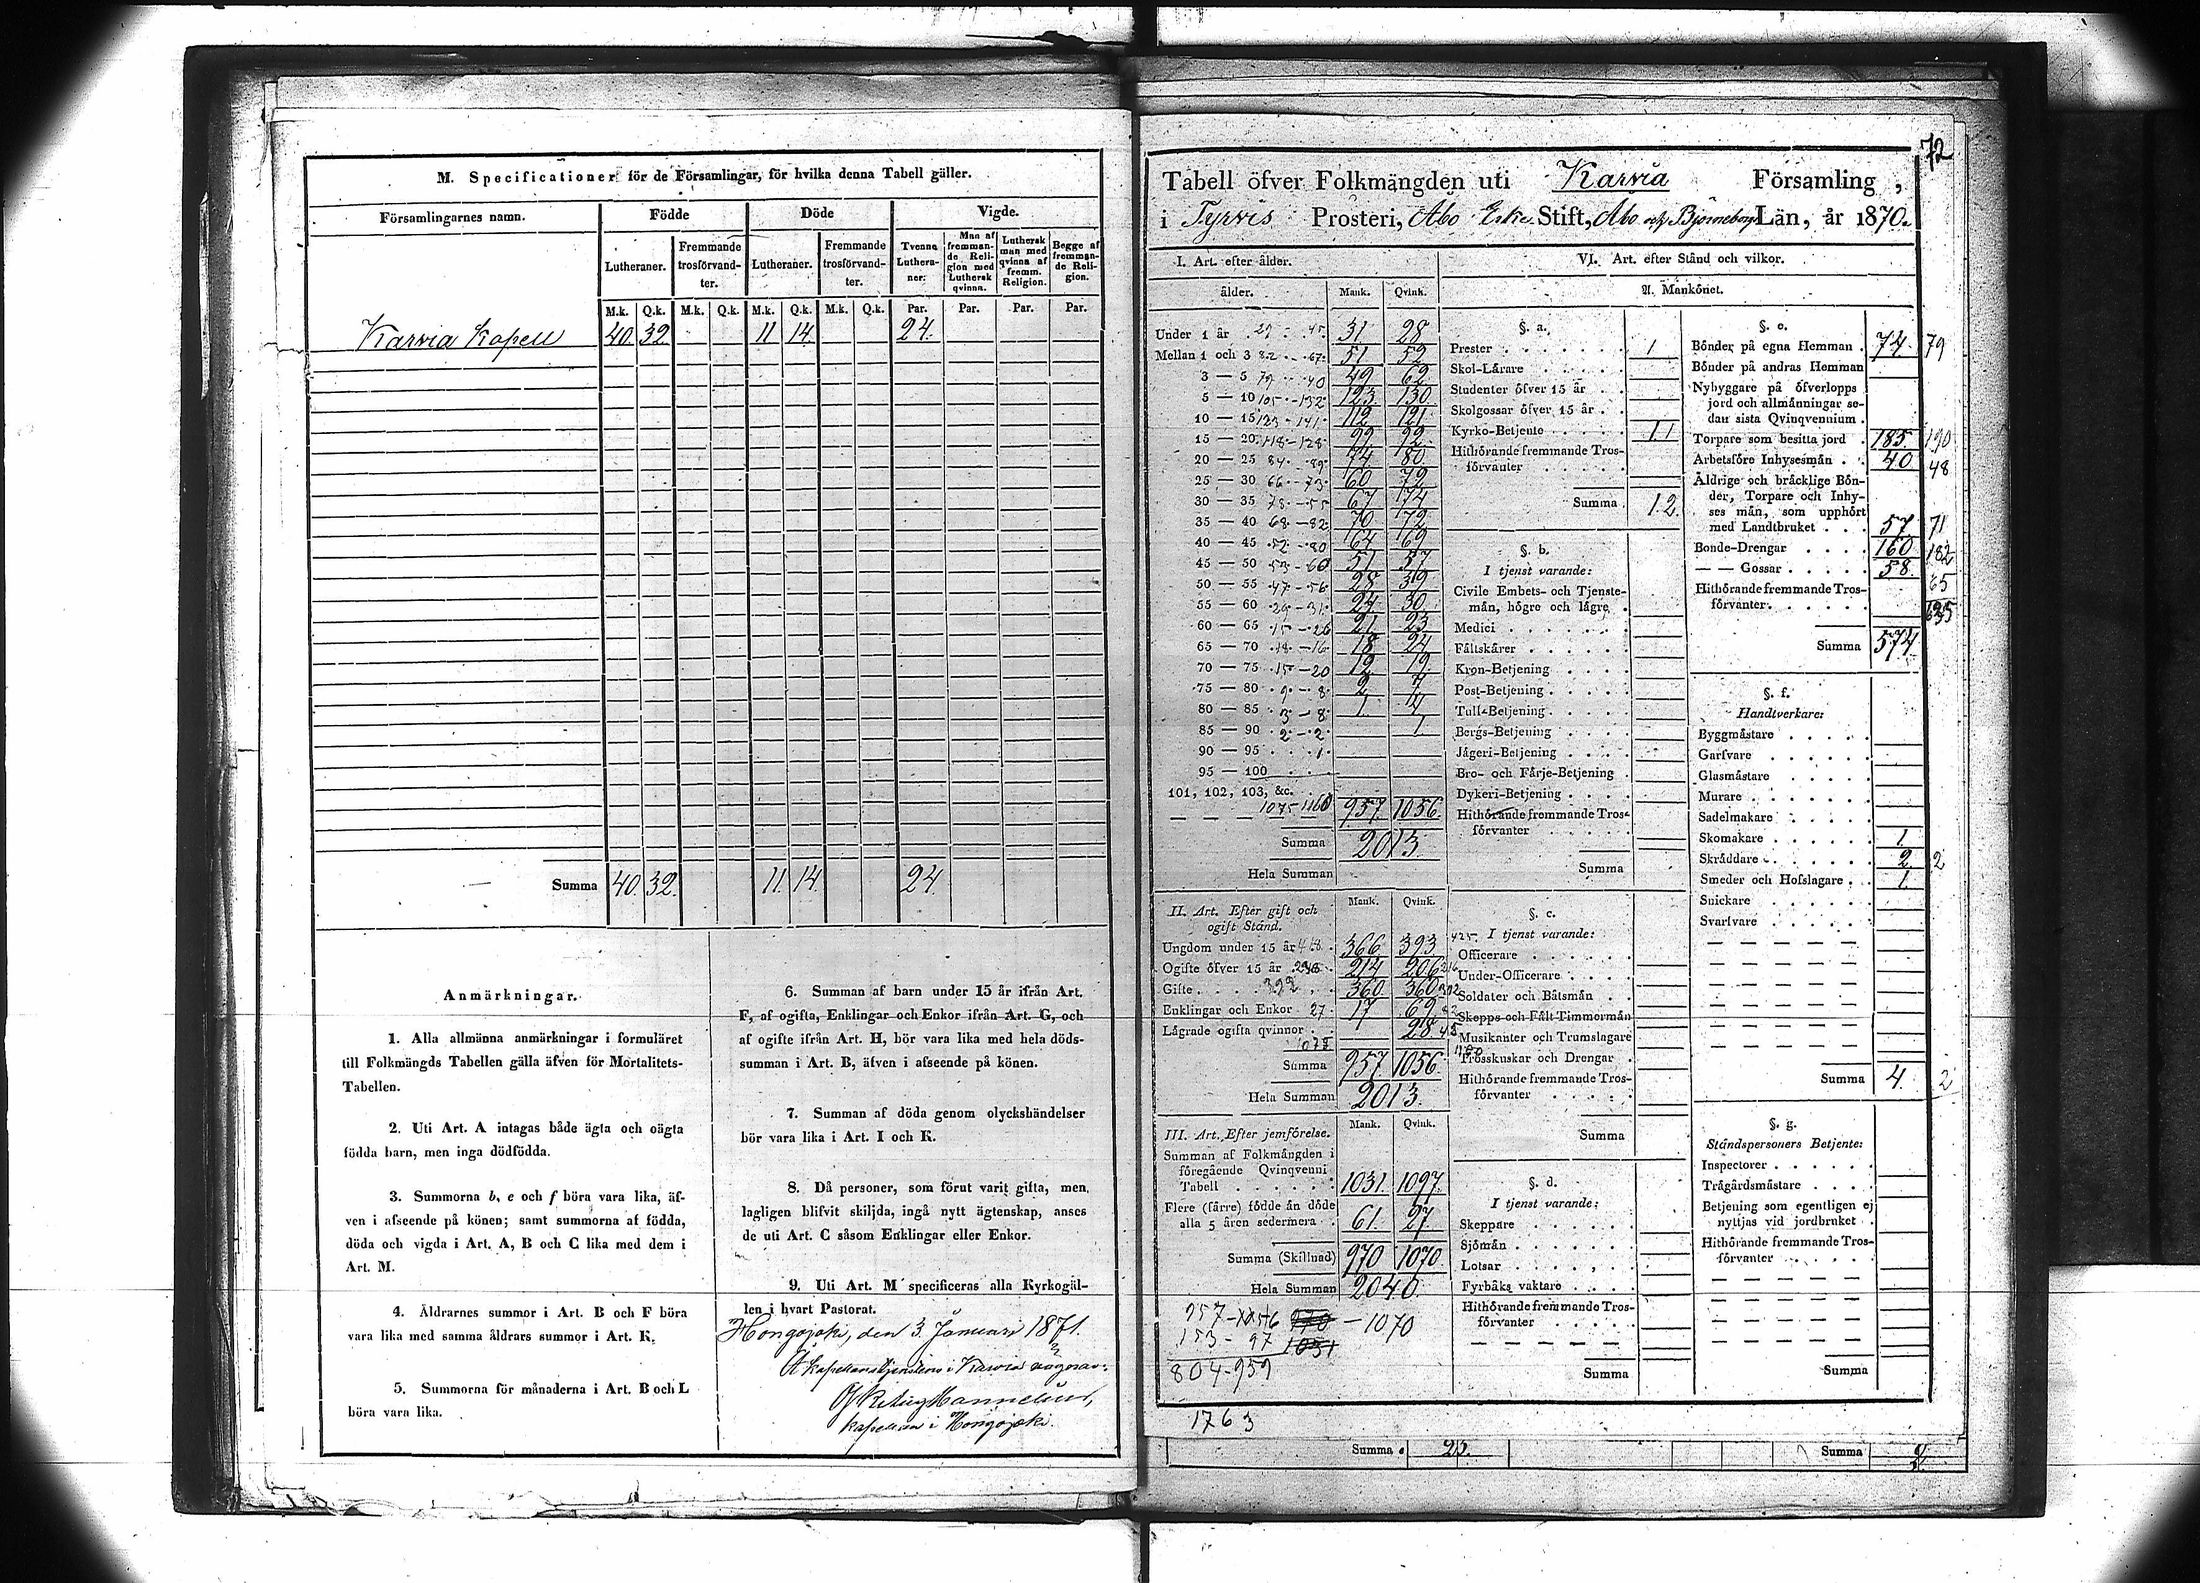 M. Specificationer för de Församlingar, för hvilka denna Tabell gäller.
Församlingarnes namn. Födde Döde Vigde.
Lutheraner. Fremmande trosförvandter. Lutheraner. Fremmande trosförvandter. Tvenne Lutheraner. Man af fremmande Religion med Luthersk qvinna. Luthersk man med qvinna af fremm. Religion. Begge af fremmande Religion.
M.k. Q.k. M.k. Q.k. M.k. Q.k. M.k. Q.k. Par. Par. Par. Par.
Karvia Kapell 40. 32 11 14. 24.
Summa 40. 32. 11. 14. 24
Anmärkningar.
1. Alla allmänna anmärkningar i formuläret
till Folkmängds Tabellen gälla äfven för Mortalitets-
Tabellen.
2. Uti Art. A intagas både ägta och oägta
födda barn, men inga dödfödda.
3. Summorna b, e och f böra vara lika, äf-
ven i afseende på könen; samt summorna af födda,
döda och vigda i Art. A, B och C lika med dem i
Art. M.
4. Åldrarnes summor i Art. B och F böra
vara lika med samma åldrars summor i Art. K.
5. Summorna för månaderna i Art. B och L
böra vara lika.
6. Summan af barn under 15 år ifrån Art.
F, af ogifta, Enklingar och Enkor ifrån Art. G, och
af ogifte ifrån Art. H, bör vara lika med hela döds-
summan i Art. B, äfven i afseende på könen.
7. Summan af döda genom olyckshändelser
bör vara lika i Art. I och K.
8. Då personer, som förut varit gifta, men
lagligen blifvit skiljda, ingå nytt ägtenskap, anses
de uti Art. C såsom Enklingar eller Enkor.
9. Uti Art. M specificeras alla Kyrkogäl-
len i hvart Pastorat.
Hongojoki, den 3. Januari 1871.
Kapellans i Karvia
kapellan i Hongojoki.
72
Tabell öfver Folkmängden uti Karvia Församling,
i Tyrvis Prosteri, Åbo Erke Stift, Åbo och Björneborgs Län, år 1870.
I. Art. efter ålder.
ålder. Mank. Qvink.
Under 1 år 31 28
Mellan 1 och 3 82 - 67 51 52
3 — 5 79 - 40 49 62
5 — 10 105 - 132 123 130
10 — 15 123 - 141 112 121
15 — 20 118 - 128 99 92
20 — 25 84 - 89 74 80
25 — 30 66 - 73 60 72
30 — 35 78 - 55 67 74
35 — 40 68 - 82 70 72
40 — 45 52 - 80 64 69
45 — 50 53 - 60 51 57
50 — 55 47 - 56 28 39
55 — 60 26 - 31 24 30
60 — 65 15 - 26 21 23
65 — 70 18 - 16 18 24
70 — 75 15 - 20 12 19
75 — 80 9 - 8 2 7
80 — 85 3 - 8 1 4
85 — 90 2 - 2 1
90 — 95 1
95 — 100
101, 102, 103, &c.
1075 1160 957 1056
Summa 2013.
Hela Summan
II. Art. Efter gift och ogift Stånd. Mank. Qvink.
Ungdom under 15 år 418 366 393 425
Ogifte öfver 15 år 214 206
Gifte 392 360 360 392
Enklingar och Enkor 27 17 69
Lägrade ogifta qvinnor 28 45
Summa 957 1056
Hela Summan 2013.
III. Art. Efter jemförelse. Mank. Qvink.
Summan af Folkmängden i
föregående Qvinqvenni
Tabell 1031. 1097.
Flere (färre) födde än döde
alla 5 åren sedermera 61. 27.
Summa (Skillnad) 970 1070.
Hela Summan 2040.
957 - 1056 970 - 1070
153 - 97 1031
804 - 959
1763
VI. Art. efter Stånd och vilkor.
A. Mankönet.
§. a.
Prester 1
Skol-Lärare
Studenter öfver 15 år
Skolgossar öfver 15 år
Kyrko-Betjente 11
Hithörande fremmande Tros-
förvanter
Summa 12.
§. b.
I tjenst varande:
Civile Embets- och Tjenste-
män, högre och lägre
Medici
Fältskärer
Kron-Betjening
Post-Betjening
Tull-Betjening
Bergs-Betjening
Jägeri-Betjening
Bro- och Färje-Betjening
Dykeri-Betjening
Hithörande fremmande Tros-
förvanter
Summa
§. c.
I tjenst varande:
Officerare
Under-Officerare
Soldater och Båtsmän
Skepps och Fält Timmermän
Musikanter och Trumslagare
Trosskuskar och Drengar
Hithörande fremmande Tros-
förvanter
Summa
§. d.
I tjenst varande:
Skeppare
Sjömän
Lotsar
Fyrbåks vaktare
Hithörande fremmande Tros-
förvanter
Summa
§. e.
Bönder på egna Hemman 74 79
Bönder på andras Hemman
Nybyggare på öfverlopps
jord och allmänningar se-
dan sista Qvinqvennium
Torpare som besitta jord 185. 190
Arbetsföre Inhysesmän 40 48
Äldrige och bräcklige Bön-
der, Torpare och Inhy-
ses män, som upphört
med Landtbruket 57 71
Bonde-Drengar 160 182
— — Gossar 58. 65
Hithörande fremmande Tros-
förvanter 635
Summa 574
§. f.
Handtverkare:
Byggmästare
Garfvare
Glasmästare
Murare
Sadelmakare
Skomakare 1.
Skräddare 2. 2
Smeder och Hofslagare 1.
Snickare
Svarfvare
Summa 4. 2
§. g.
Ståndspersoners Betjente:
Inspectorer
Trågårdsmästare
Betjening som egentligen ej
nyttjas vid jordbruket
Hithörande fremmande Tros-
förvanter
Summa
Summa Summa